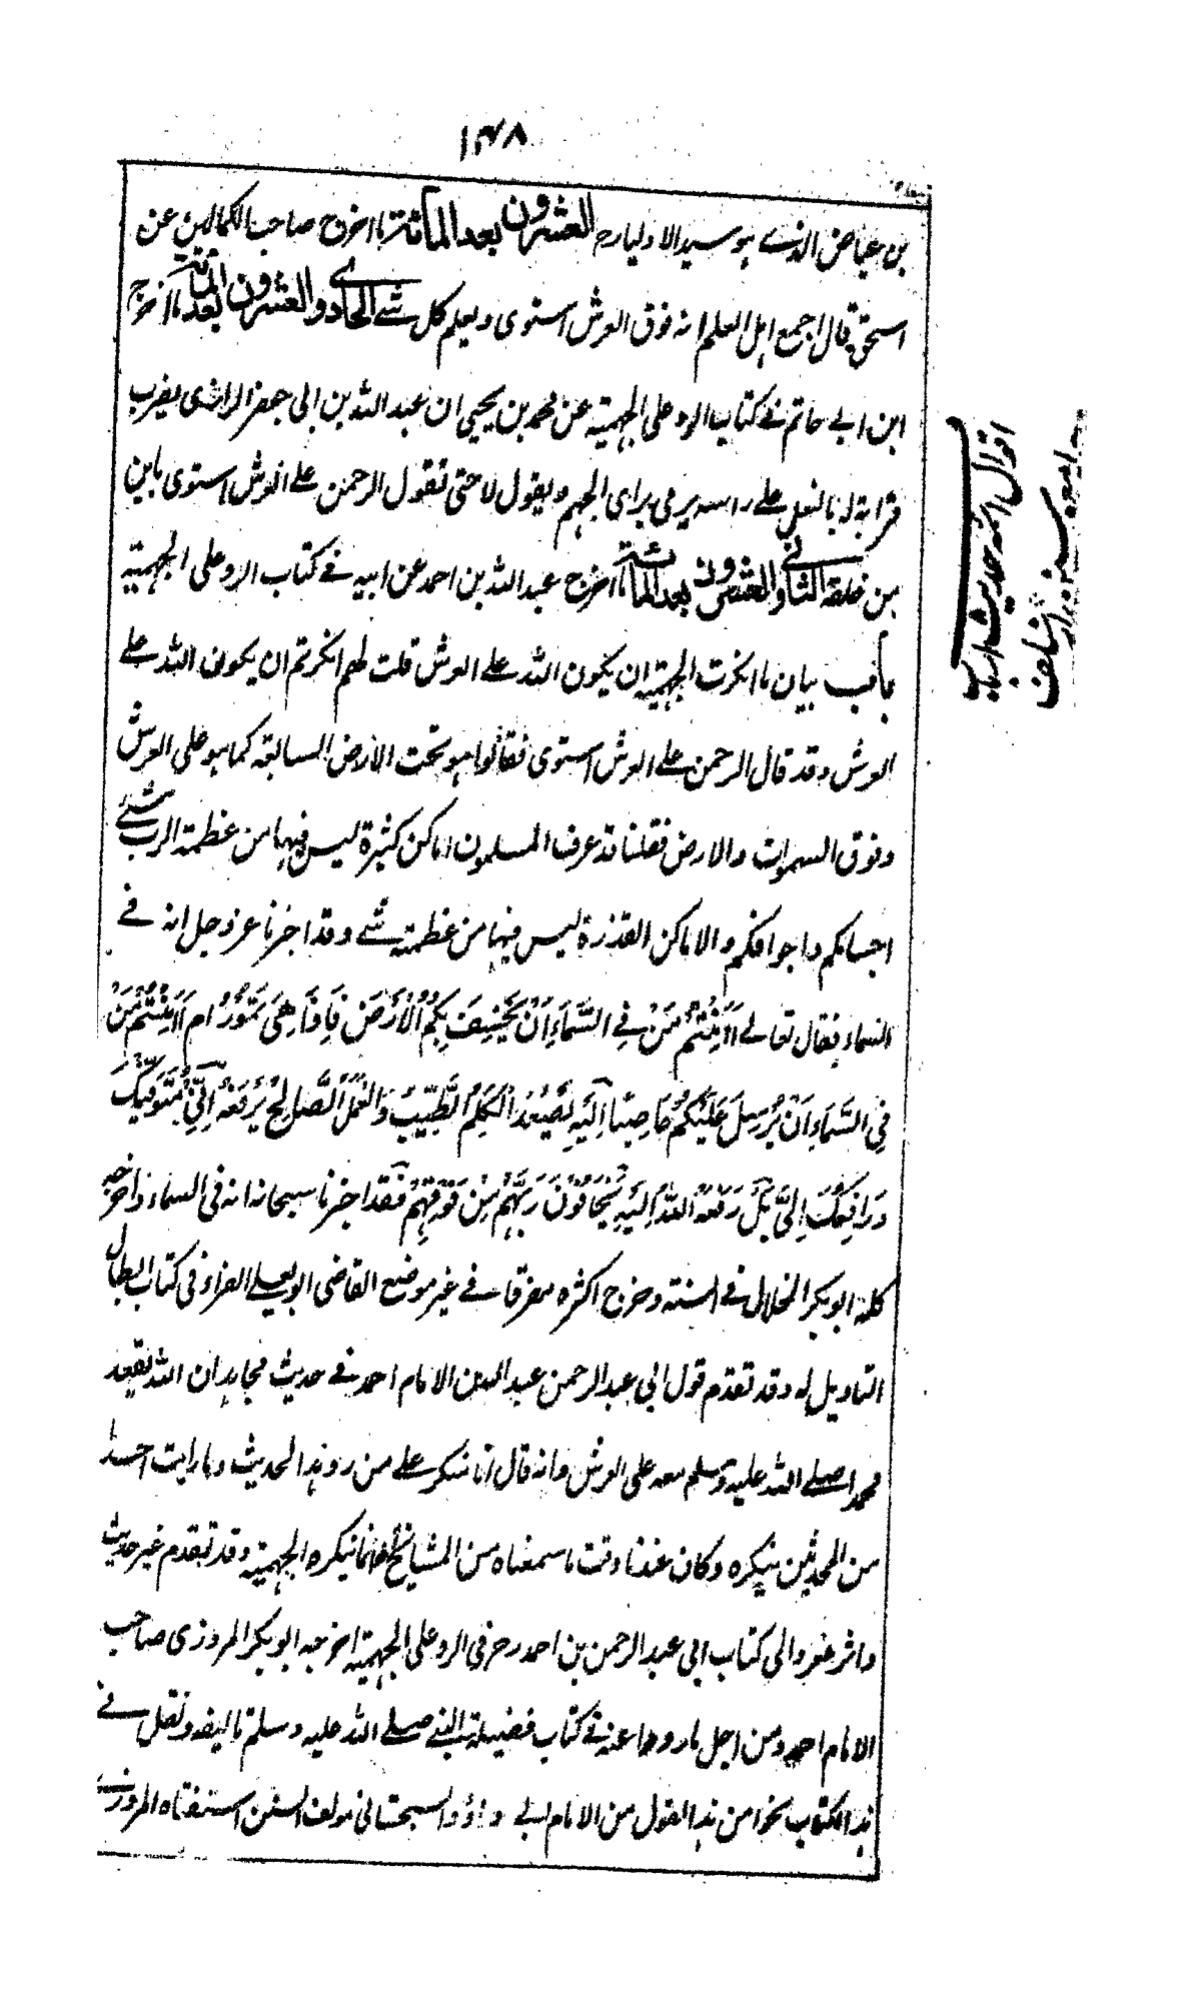 ١٣٨
بن عياض الذے ہو سيد الاوليا رح العشرون بعد المائة ما اخرج صاحب الكمالين عن
اسحق قال اجمع اہل العلم انه فوق العرش استوى ويعلم كل شے الحادي والعشرون بعد المائة ما اخرج
ابن ابے حاتم فے كتاب الرد على الجہمية عن محمد بن يحيى ان عبد الله بن ابى جعفر الرازى يضرب
قرابة له بالنعل علے راسه يرمى براى الجہم ويقول لا حتى تقول الرحمن علے العرش استوى باين
من خلقه الثانى والعشرون بعد المائة ما اخرج عبد الله بن احمد عن ابيه فے كتاب الرد على الجہمية
باب بيان ما انكرت الجہمية ان يكون الله علے العرش قلت لهم انكرتم ان يكون الله علے
العرش وقد قال الرحمن علے العرش استوى فقالوا ہو تحت الارض السابعة كما ہو على العرش
وفوق السموات والارض فقلنا قد عرف المسلمون اماكن كثيرة ليس فيها من عظمة الرب شے
اجسامكم واجوافكم والاماكن القذرة ليس فيها من عظمته شے وقد اخبرنا عز وجل انه فے
السماء فقال تعالے ءَاَمِنْتُمْ مَنْ فِي السَّمَاءِ اَنْ يَخْسِفَ بِكُمُ الْاَرْضَ فَاِذَا هِىَ تَمُوْرُ ام اَمِنْتُمْ مَنْ
فِي السَّمَاءِ اَنْ يُرْسِلَ عَلَيْكُمْ حَاصِبًا اِلَيْهِ يَصْعَدُ الْكَلِمُ الطَّيِّبُ وَالْعَمَلُ الصَّالِحُ يَرْفَعُهُ اِنِّي مُتَوَفِّيْكَ
وَرَافِعُكَ اِلَىَّ بَلْ رَفَعَهُ اللهُ اِلَيْهِ يَخَافُوْنَ رَبَّهُمْ مِنْ فَوْقِهِمْ فقد اخبرنا سبحانه انه فى السماء واخرجه
كله ابو بكر الخلال فے السنة وخرج اكثره مفرقا فے غير موضع القاضى ابو يعلے الفراء فى كتاب ابطال
التاويل له وقد تقدم قول ابى عبد الرحمن عبد الله بن الامام احمد فے حديث مجاہد ان الله يقعد
محمدا صلے الله عليه وسلم معه على العرش وانه قال انا منكر علے من رد ہذا الحديث وما رايت احدا
من المحدثين ينكره وكان عندنا وقت ما سمعناه من المشايخ انما ينكره الجہمية وقد تقدم غير حديث
واثر معزوا لى كتاب ابى عبد الرحمن بن احمد رح فى الرد على الجہمية اخرجه ابو بكر المروزى صاحب
الامام احمد ومن اجل ما روى عنه فے كتاب فضيلة النبے صلے الله عليه وسلم تاليفه ونقل فے
ہذا الكتاب نحوا من ہذا القول من الامام ابے داؤد السجستانى مؤلف السنن استفتاه المروزے
اقوال ائمہ حديث ارباب